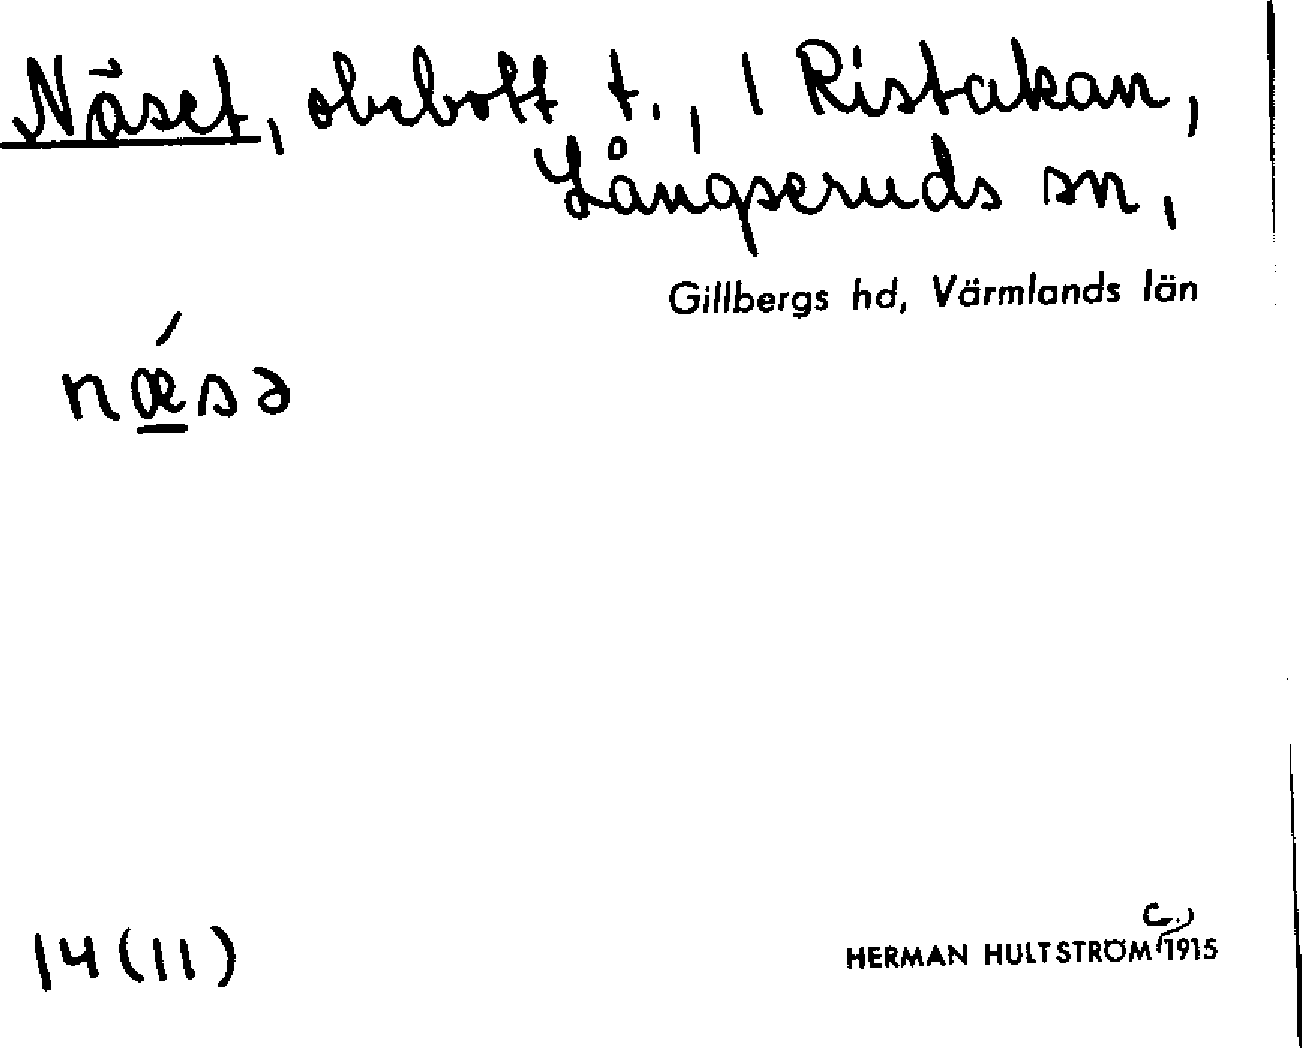 Näset, obebott t., 1 Ristakan,
Långseruds sn,
Gillbergs hd, Värmlands län
nǽ̲sə
14(11)
HERMAN HULTSTRÖM (c.) 1915